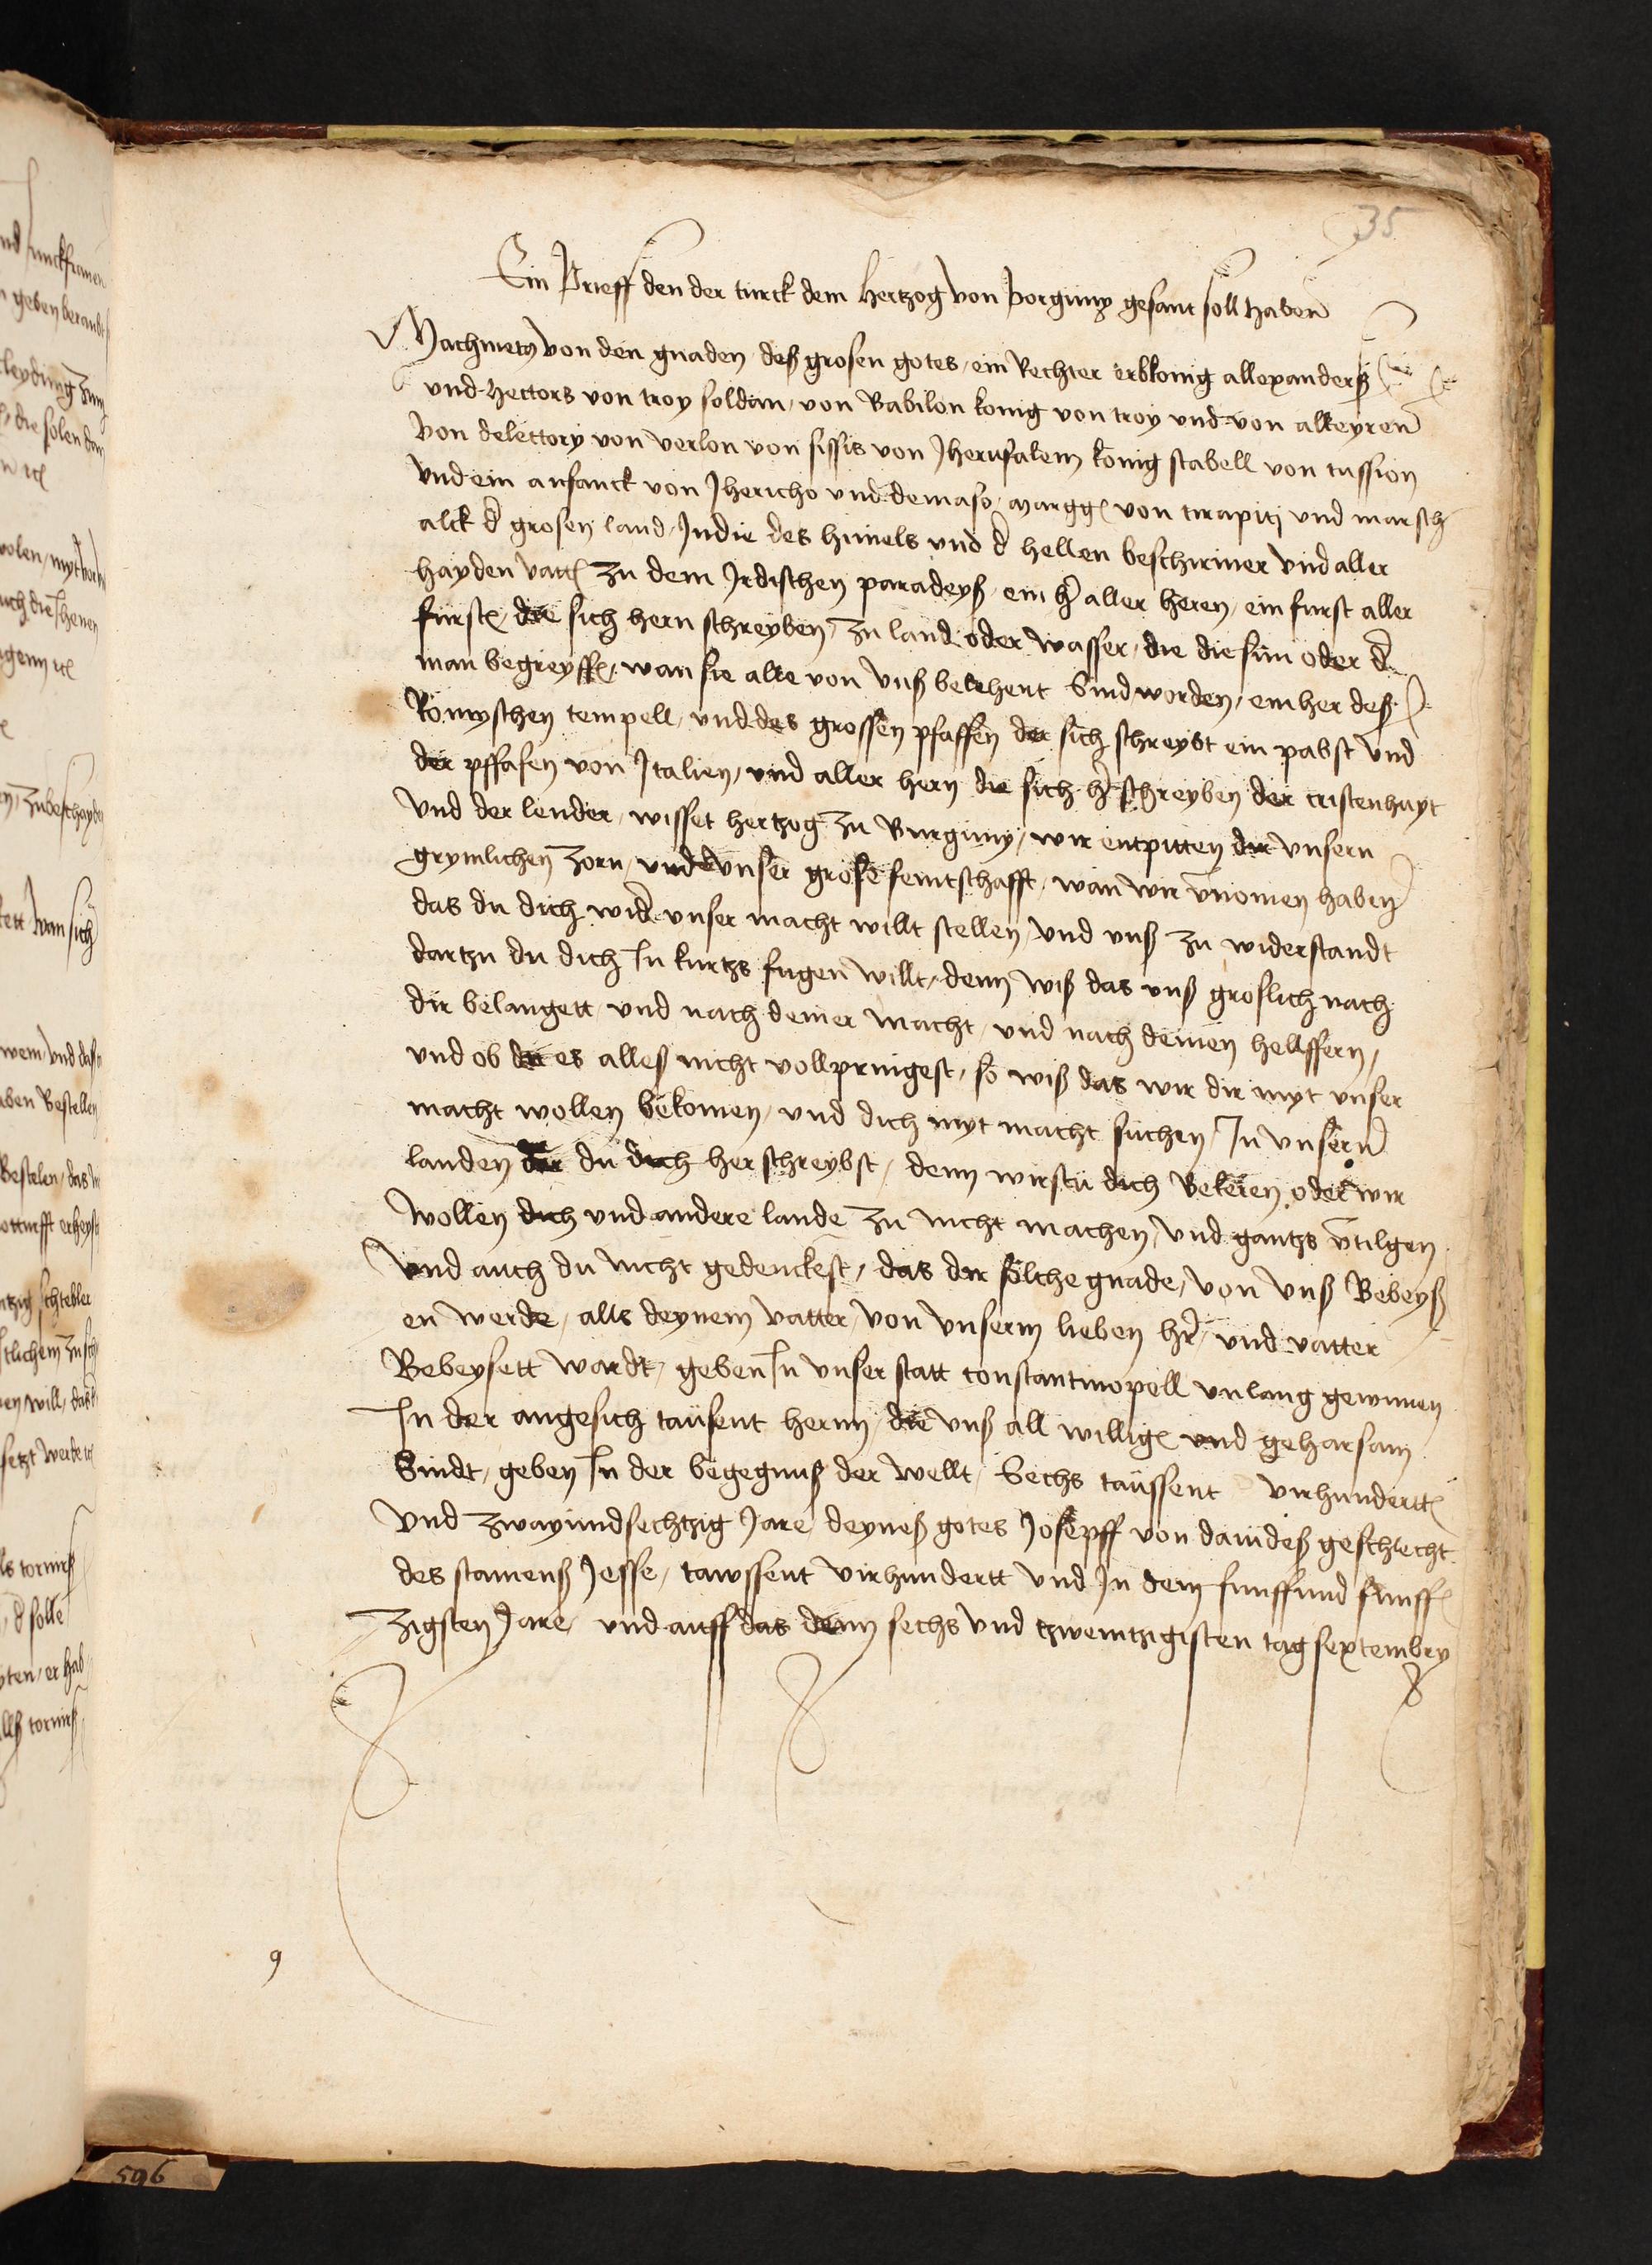 35
Ein Prieff den der turck dem hertzog von borguny gesant soll haben
Machmetz von den gnaden deß grosen gotes / ein Rechter erbkonig allexanderß
und hectors von troy soldan / von Babilon konig von troy und von alkeyren
von delettory von verlon von sissis von Jherusalem konig stabell von tussion
und ein anfanck von Jhericho und demaso / margg von trapitj und marsch
alck d grosen land / Indie des himels und d hellen beschirmer und aller
hayden vatt zu dem Jrdischen paradeyß / ein h aller heren / ein furst aller
furst / die sich hern schreyben / zu land oder wasser / die die sun oder d
man begreyff / wan sie alle von unß belehent sind worden / ein her deß
Romyschen tempell / und des grossen pfaffen der sich schreybt ein pabst und
der pffafen von Jtalien / und aller hern die sich h schreyben der cristenhayt
und der lender / wisset hertzog zu Burguny / wir entpitten dir unsern
grymlichen zorn / und unser grose feintschafft / wan wir vnomen haben
das du dich wid unser macht willt stellen / und unß zu widerstandt
dartzu du dich In kurtzs fugen willt / denn wiß das unß groslich nach
dir belangett / und nach deiner macht / und nach deinen hellffern /
und ob du es alleß nicht vollpringest / so wiß das wir dir myt unser
macht wollen bekomen / und dich myt macht suchen / In unsern
landen der du dich her schreybst / denn wirstu dich bekeren oder wir
wollen dich und andere lande zu nicht machen / und gantzs vtilgen
und auch du nicht gedenckest / das dir solche gnade / von unß Beweyß
en werde / alls deynem vatter / von unserm lieben hr / und vatter
Beweysett wardt / geben In unser statt constantinopell unlang gewunen
In der angesich tausent hernn / die unß all willig und geharsam
Sindt / geben In der begegnuß der wellt / Sechs taussent virhundertt
und zwayundsechtzig Jare / deyneß gotes Josepff von dauideß geschlecht
des stamenß Jesse / tawssent virhundertt und In dem funffund funff
zigsten Jare / und auff das denn sechs und tzweintzigisten tag septembry
9
596